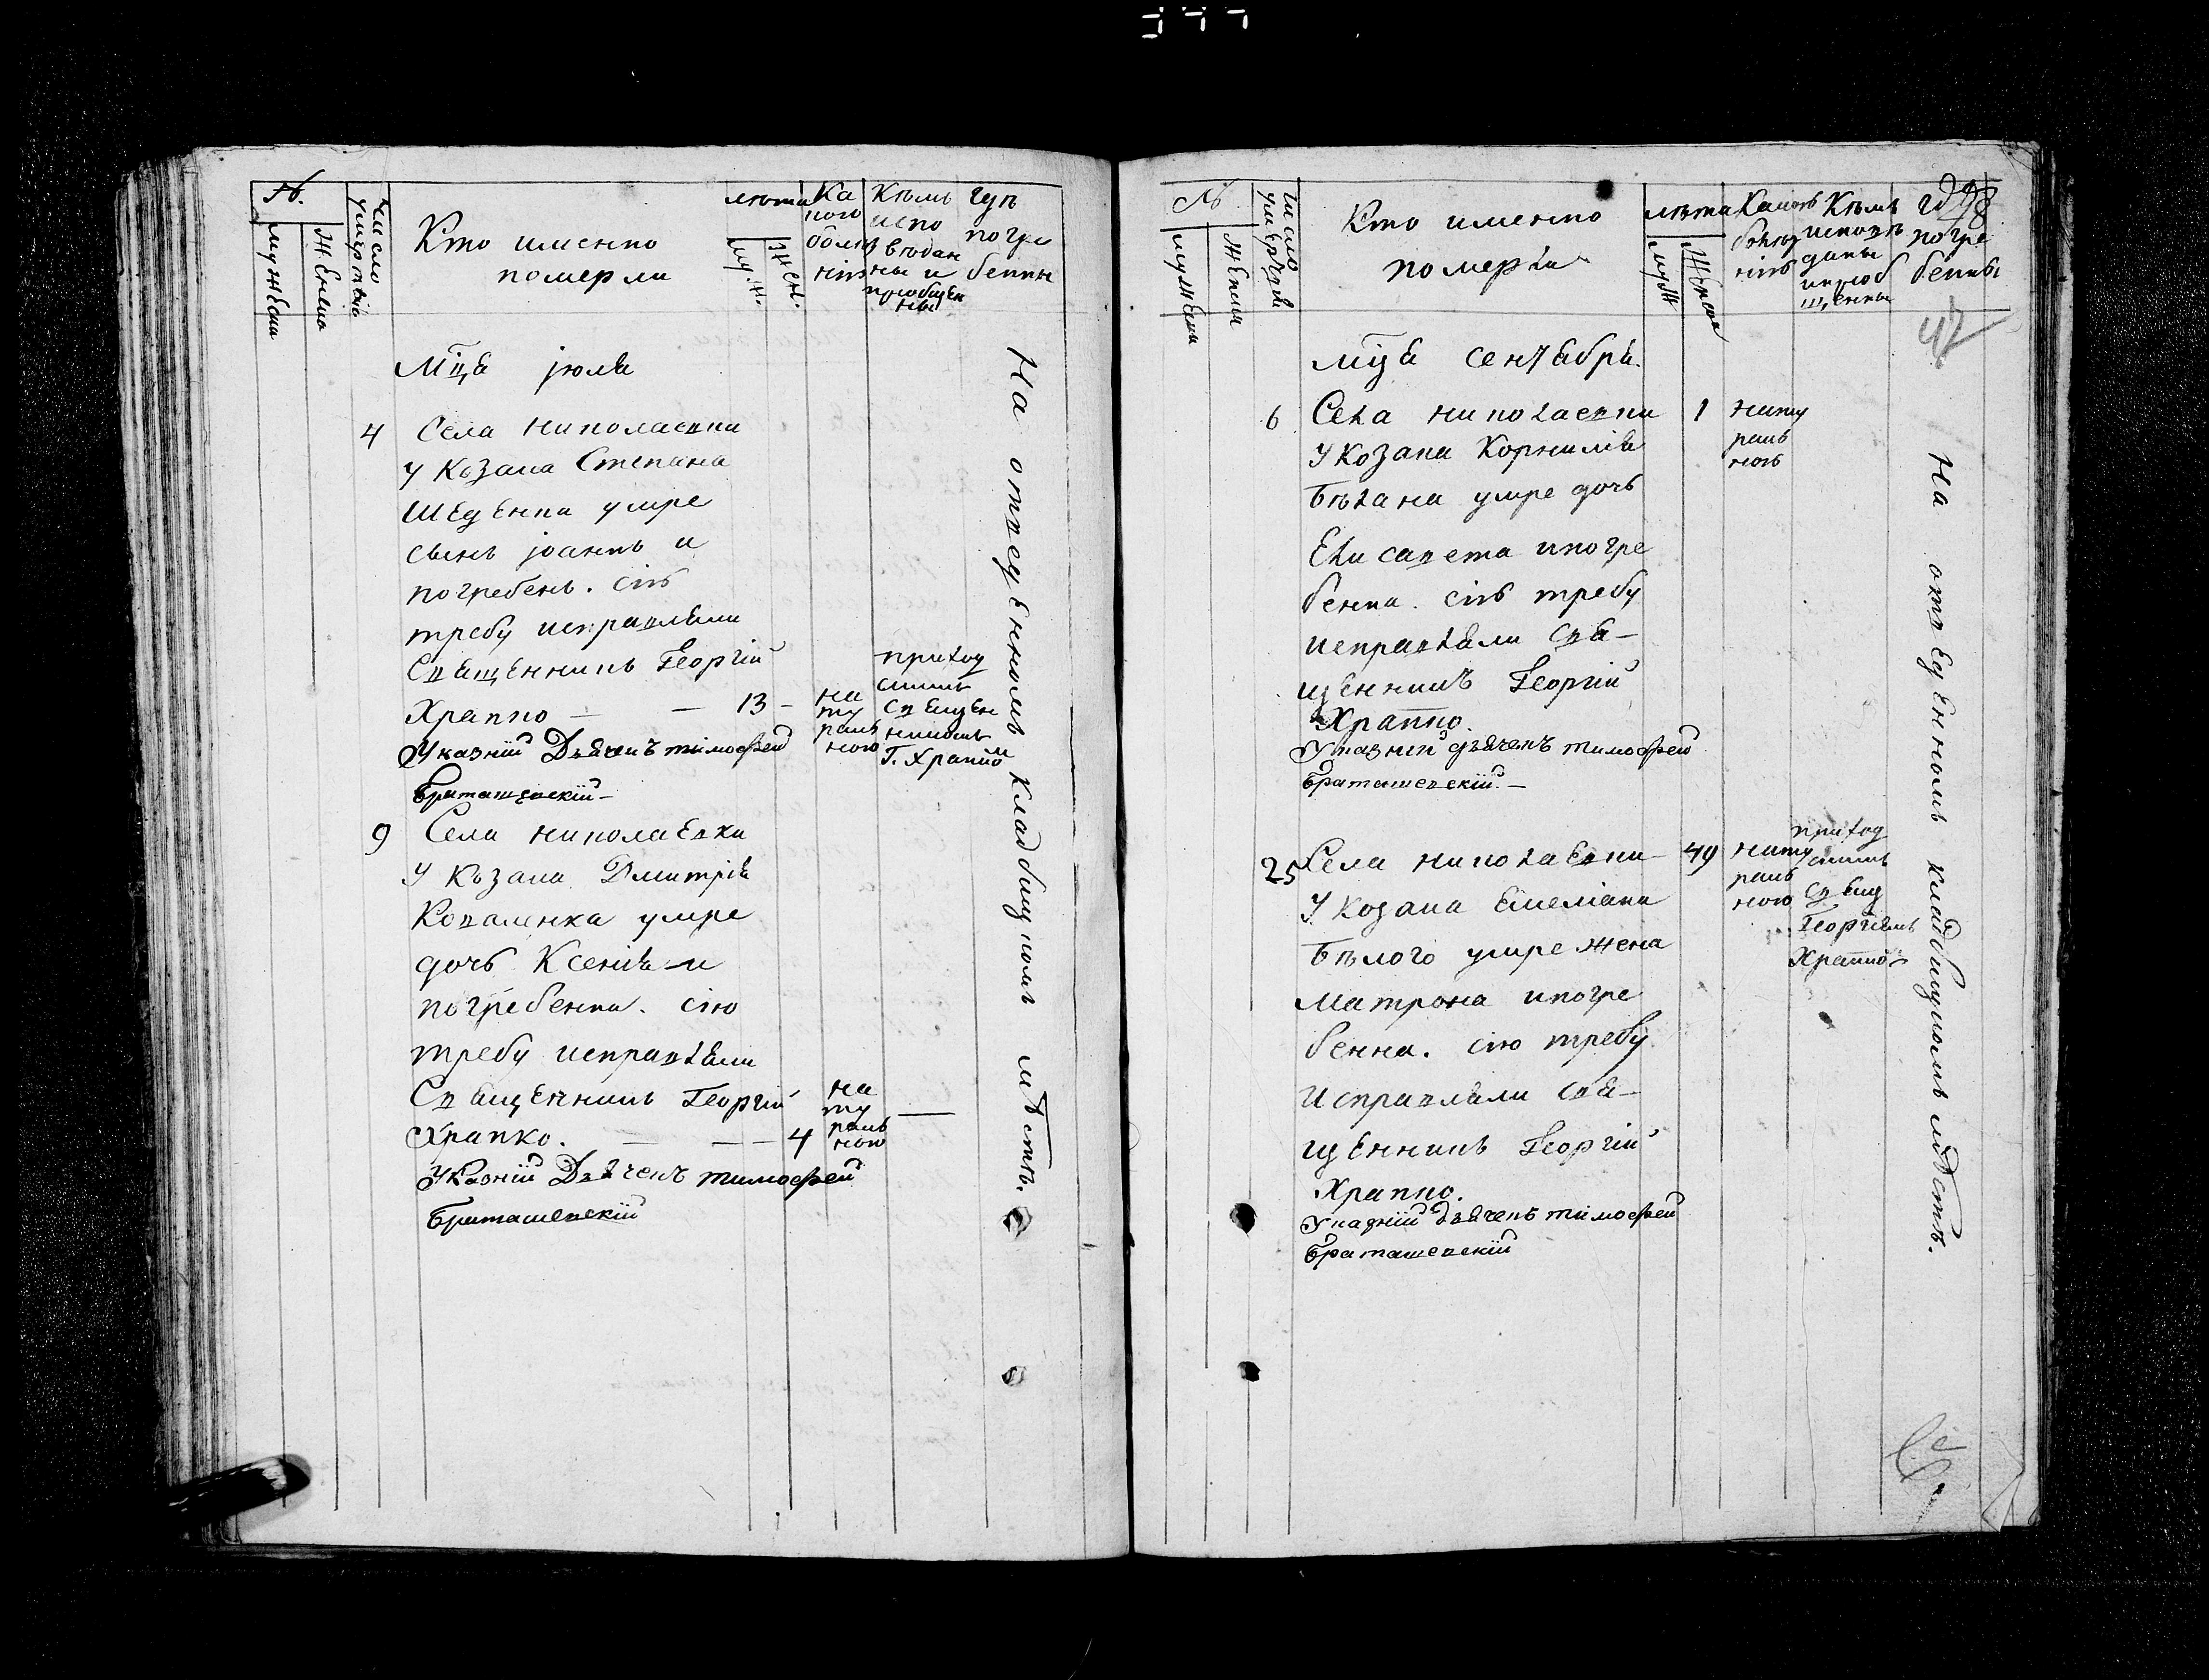 №.
мужеска
женска
число умертвій
Кто именно
померли
лѣта
муж.
жен.
Ка
кого
болѣз
нію
Кѣмъ
испо
вѣдан
ны и
приобщен
ны
гдѣ
погре
бенны
Мц̃а іюля
4 Села николаевки
у козака Степана
Шеденка умре
сынъ іоаннъ и
погребенъ. сію
требу исправляли
Священникъ Георгій
Храпко — — 13 —
на
ту
раль
ною
приход
скимъ
Священ
никомъ
Г. Храпко
Указній Дьячекъ тимофей
Браташевскій —
9 Села николаевки
у козака Дмитрія
Коваленка умре
дочь Ксенія и
погребенна. сію
требу исправляли
Священникъ Георгій
Храпко. — — — 4
на
ту
раль
ною
—
Указній Дьячекъ тимофей
Браташевскій
На отведенномъ кладбищномъ мѣстѣ.
№
мужеска
женска
число умертвій
Кто именно
померли
лѣта
муж
женска
Какою
болѣз
нію
Кѣмъ
исповѣ
даны
и приоб
щенны
гдѣ
погре
бенны
42
мц̃а сентября.
6 Села николаевки 1
у козака Корнилія
Бѣлана умре дочь
Елисавета и погре
бенна. сію требу
исправляли Свя-
щенникъ Георгій
Храпко.
нату
раль
ною
Указній дьячекъ тимофей
Браташевскій. —
25 Села николаевки 49
у козака Емеліана
Бѣлого умре жена
Матрона и погре
бенна. сію требу
Исправляли Свя-
щенникъ Георгій
Храпко.
нату
раль
ною
приход
скимъ
Свящ
Георгіемъ
Храпко
Указній дьячекъ тимофей
Браташевскій
На отведенномъ кладбищномъ мѣстѣ.